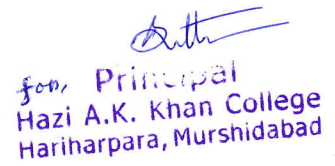 for, Principal
Hazi A.K. Khan College
Hariharpara, Murshidabad